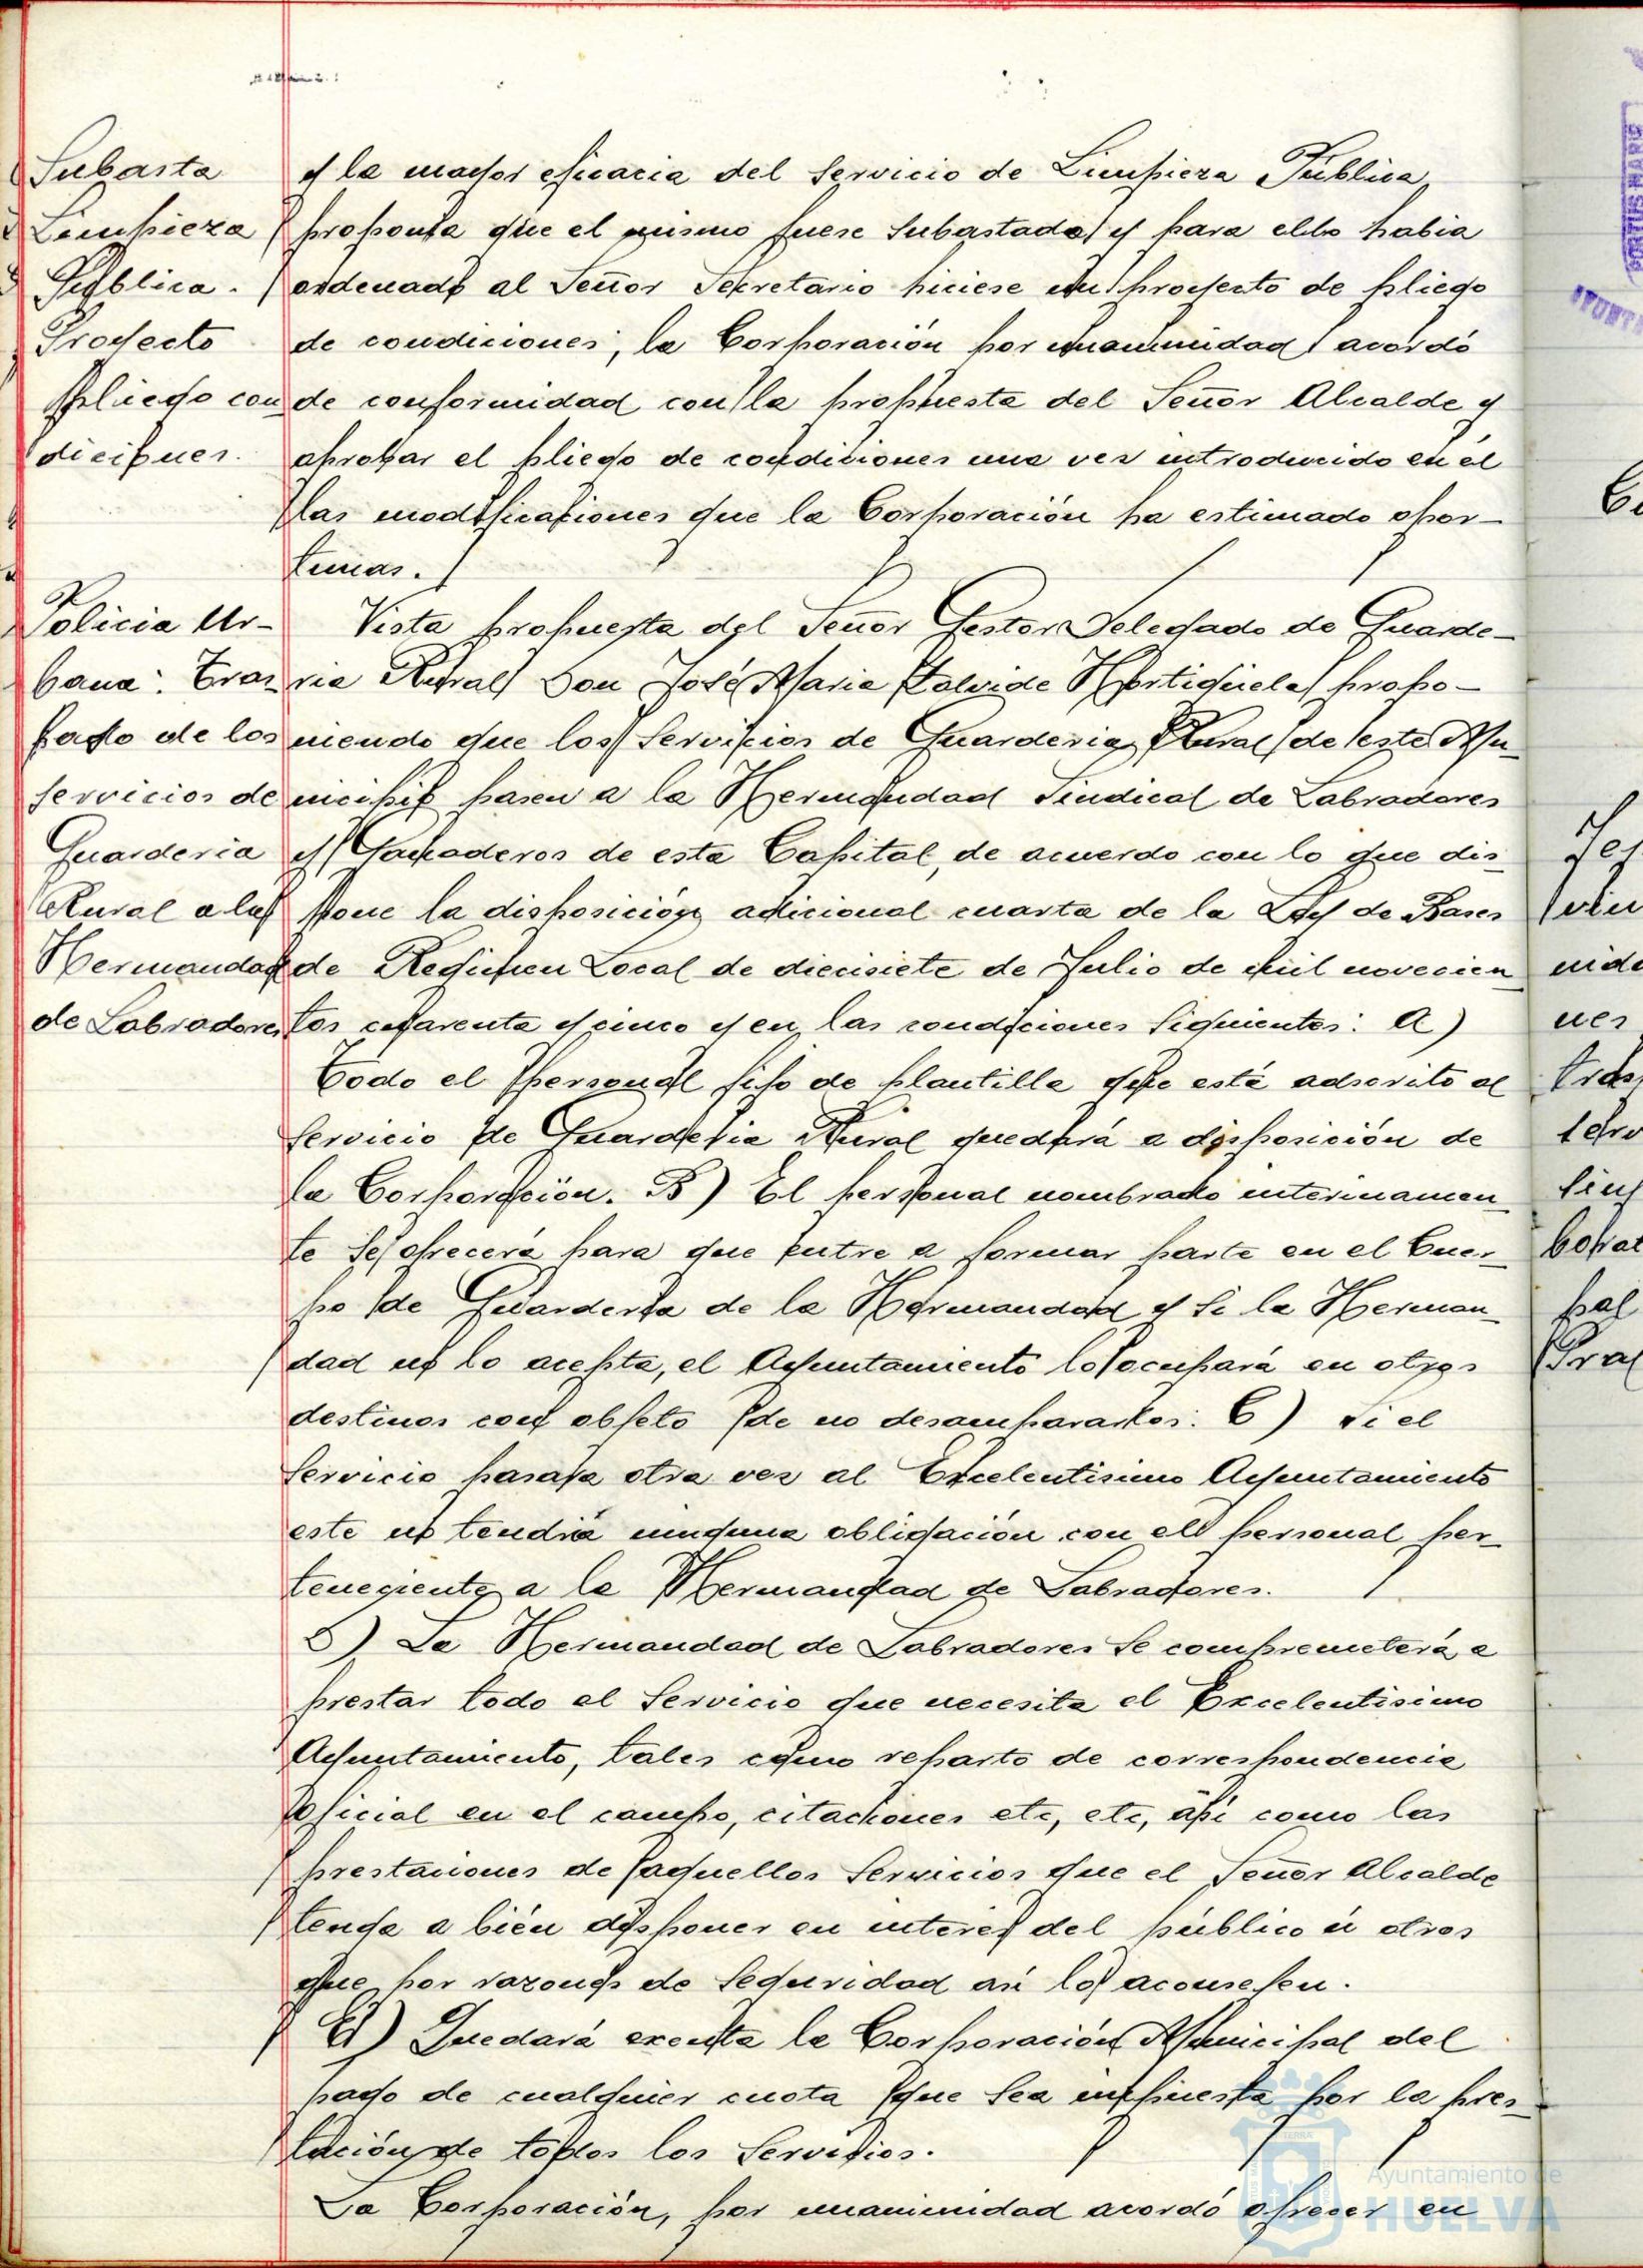 Subasta
Limpieza
Pública.
Proyecto
pliego con
diciones.
y la mayor eficacia del Servicio de Limpieza Pública,
proponía que el mismo fuese Subastado, y para ello habia
ordenado al Señor Secretario hiciese un proyecto de pliego
de condiciones; la Corporación por unanimidad acordó
de conformidad con la propuesta del Señor Alcalde y
aprobar el pliego de condiciones una vez introducido en él
las modificaciones que la Corporación ha estimado opor-
tunas.
Policia Ur-
bana: Tras
paso de los
servicios de
Guarderia
Rural a la
Hermandad
de Labradores
Vista propuesta del Señor Gestor Delegado de Guarde-
ria Rural Don José Maria Hortigüela, propo-
niendo que los Servicios de Guarderia Rural de este Mu-
nicipio pasen a la Hermandad Sindical de Labradores
y Ganaderos de esta Capital, de acuerdo con lo que dis-
pone la disposición adicional cuarta de la Ley de Bases
de Regimen Local de diecisiete de Julio de mil novecien-
tos cuarenta y cinco y en las condiciones Siguientes: A)
Todo el personal fijo de plantilla que está adscrito al
Servicio de Guarderia Rural quedará a disposición de
la Corporación. B) El personal nombrado interinamen-
te Se ofrecerá para que entre a formar parte en el Cuer-
po de Guarderia de la Hermandad y Si la Herman-
dad no lo acepta, el Ayuntamiento lo ocupará en otros
destinos con objeto de no desampararlos. C) Si el
Servicio pasara otra vez al Excelentisimo Ayuntamiento
este no tendrá ninguna obligación con el personal per-
teneciente a la Hermandad de Labradores.
D) La Hermandad de Labradores Se comprometerá a
prestar todo el Servicio que necesita el Excelentisimo
Ayuntamiento, tales como reparto de correspondencia
oficial en el campo, citaciones etc, etc, así como las
prestaciones de aquellos Servicios que el Señor Alcalde
tenga a bién disponer en interés del público ú otros
que por razones de Seguridad asi lo aconsejen.
E) Quedará exenta la Corporación Municipal del
pago de cualquier cuota que Sea impuesta por la pres-
tación de todos los Servicios.
La Corporación, por unanimidad acordó ofrecer en
Ayuntamiento de
HUELVA